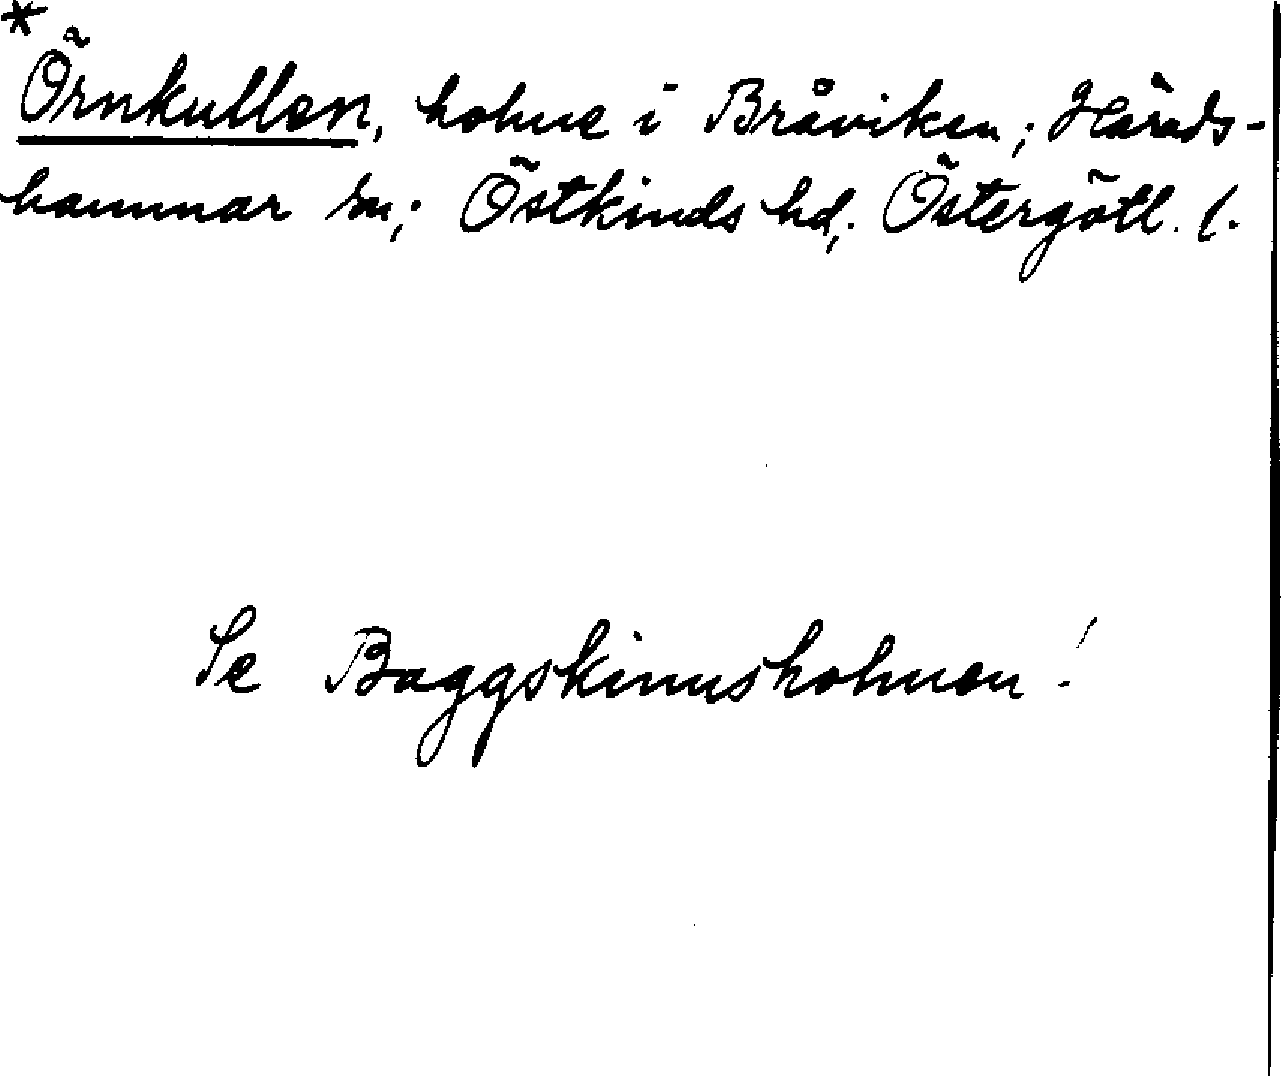 *
Örnkullen, holme i Bråviken; Härads-
hammar sn; Östkinds hd; Östergötl. l.
Se Baggskinnsholmen!